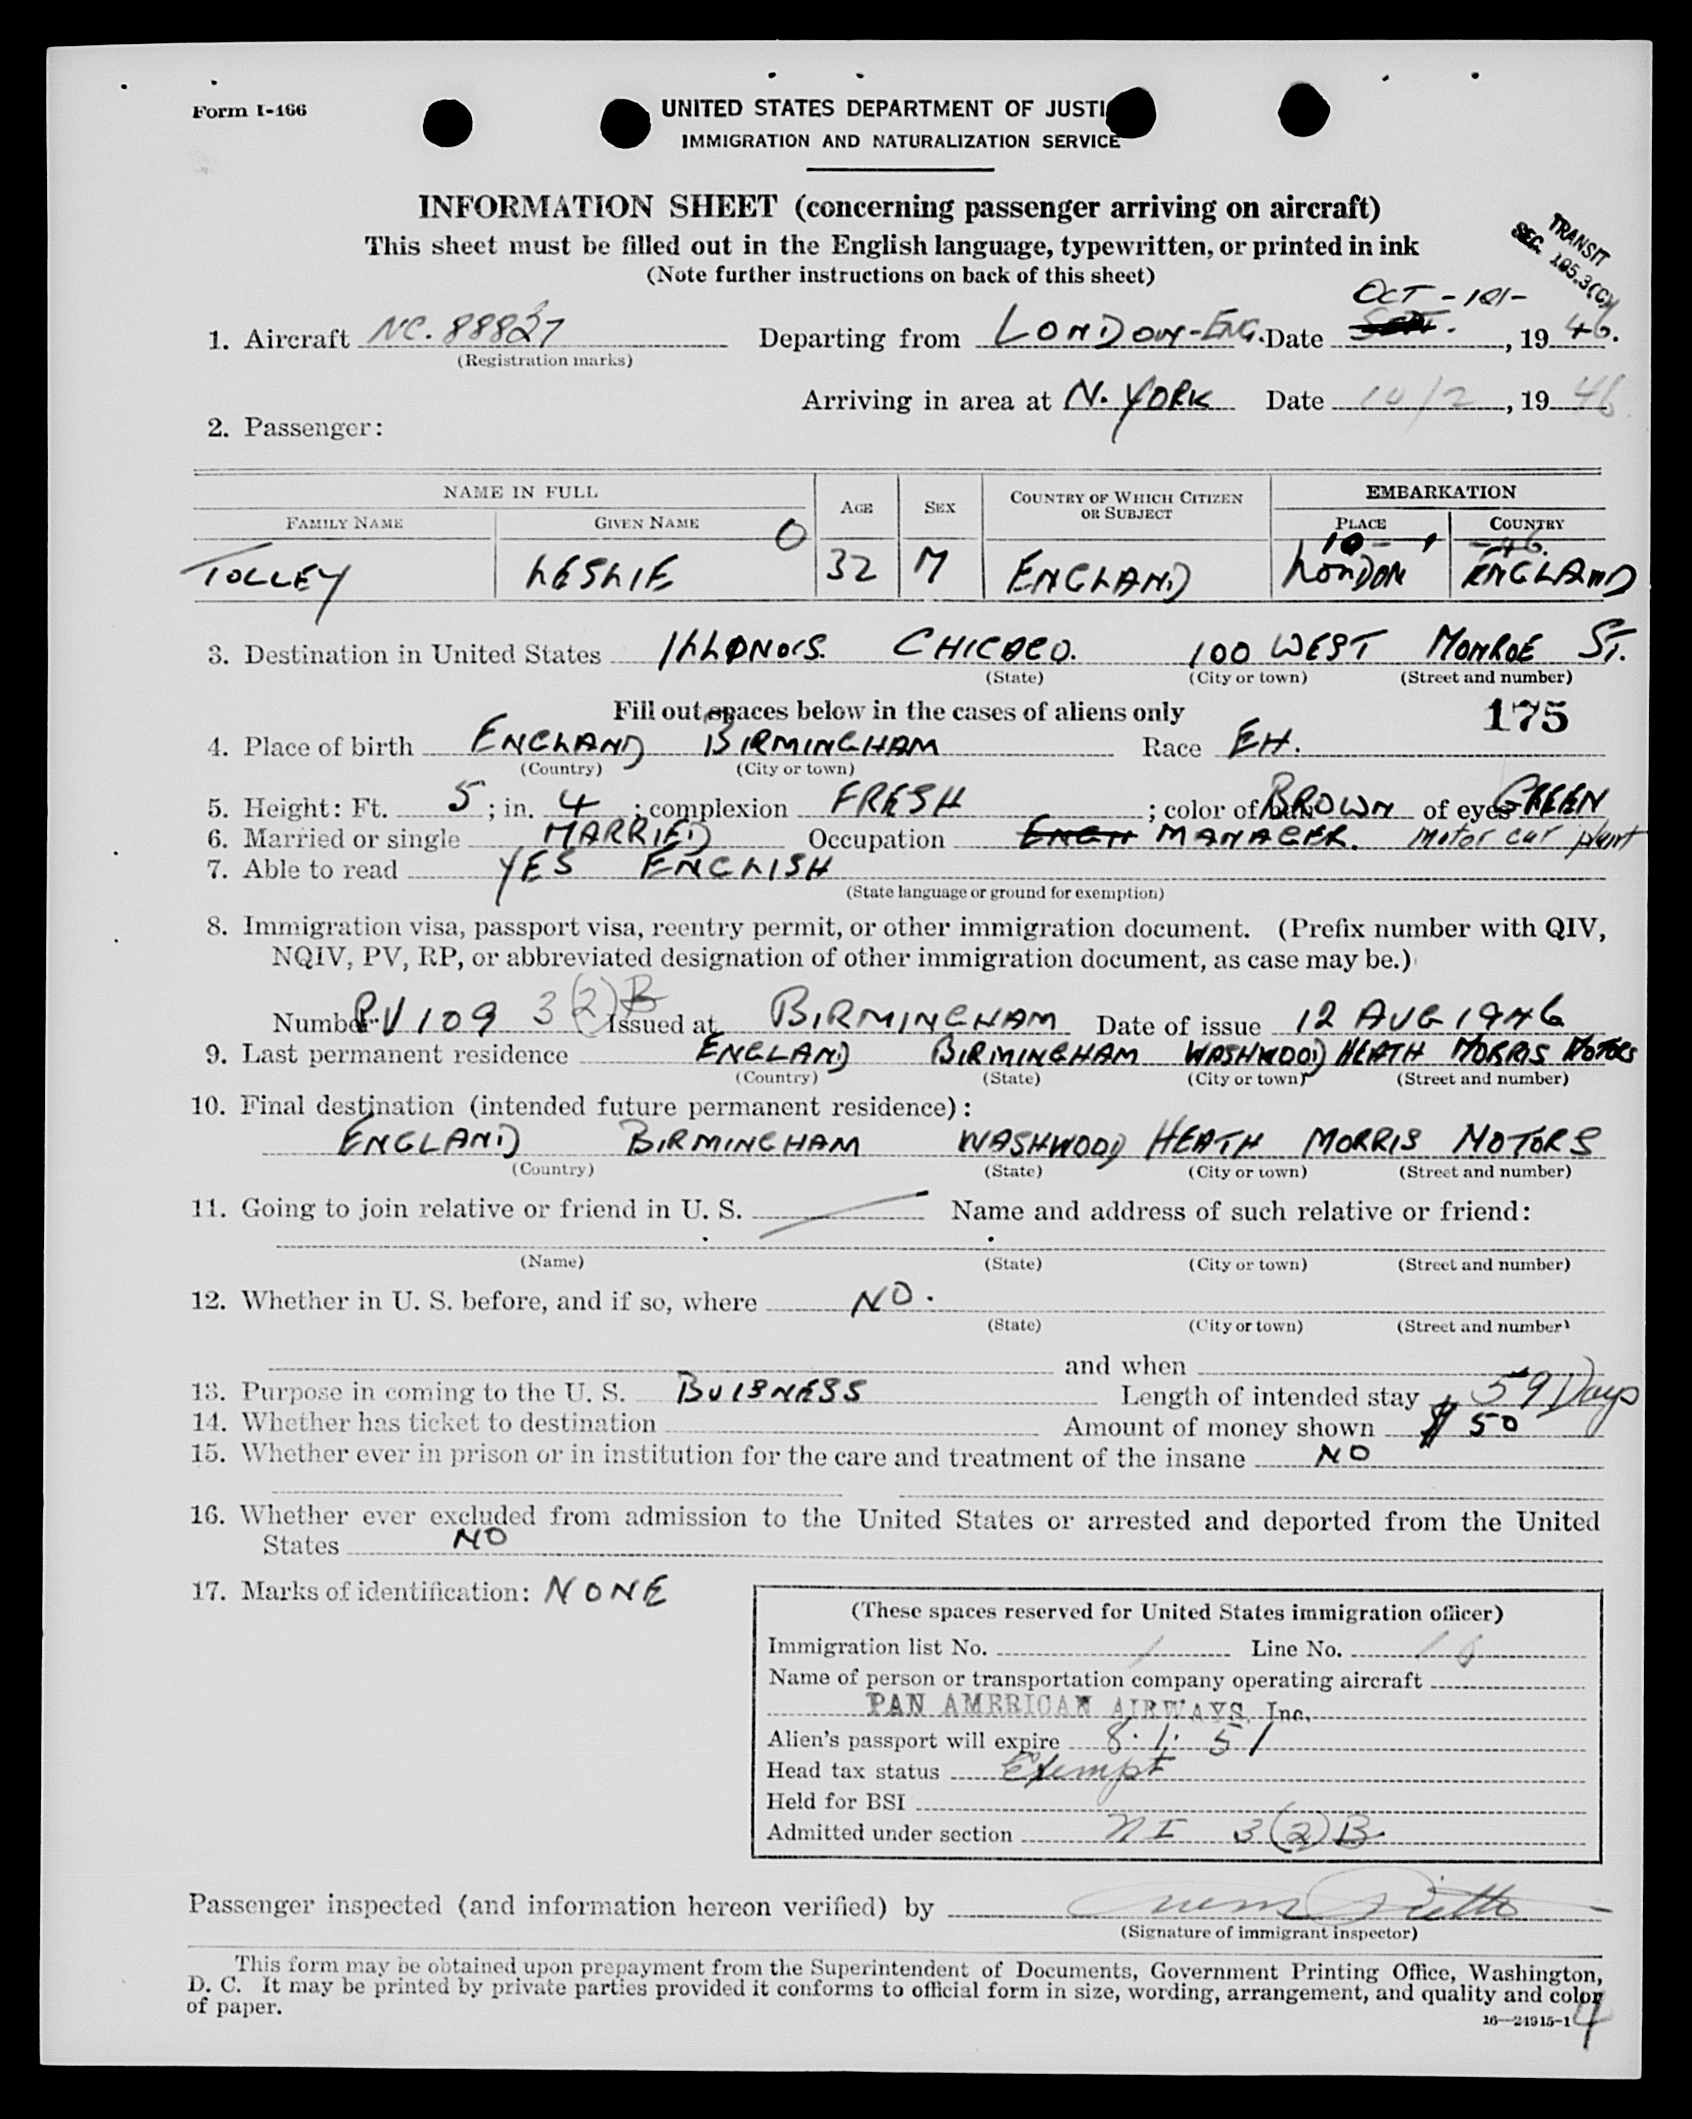 Form I-466
UNITED STATES DEPARTMENT OF JUSTI
IMMIGRATION AND NATURALIZATION SERVICE
INFORMATION SHEET (concerning passenger arriving on aircraft)
This sheet must be filled out in the English language, typewritten, or printed in ink
(Note further instructions on back of this sheet)
TRANSIT
SEC. 105.3(C)
OCT - 1st -
1. Aircraft NC. 88837 Departing from LONDON - ENG. Date SEPT. , 19 46.
(Registration marks)
Arriving in area at N. YORK Date 10/2 , 19 46
2. Passenger:
NAME IN FULL AGE SEX COUNTRY OF WHICH CITIZEN OR SUBJECT EMBARKATION
FAMILY NAME GIVEN NAME PLACE COUNTRY
O 10 - 1 - 46.
TOLLEY LESLIE 32 M ENGLAND LONDON ENGLAND
3. Destination in United States ILLONOIS. CHICAGO. 100 WEST MONROE ST.
(State) (City or town) (Street and number)
Fill out spaces below in the cases of aliens only 175
4. Place of birth ENGLAND BIRMINGHAM Race EH.
(Country) (City or town)
5. Height: Ft. 5 ; in. 4 ; complexion FRESH ; color of hair BROWN of eyes GREEN
6. Married or single MARRIED Occupation ENGH MANAGER. motor car plant
7. Able to read YES ENGLISH
(State language or ground for exemption)
8. Immigration visa, passport visa, reentry permit, or other immigration document. (Prefix number with QIV,
NQIV, PV, RP, or abbreviated designation of other immigration document, as case may be.)
Number PV 109 3(2)B Issued at BIRMINGHAM Date of issue 12 AUG 1946
9. Last permanent residence ENGLAND BIRMINGHAM WASHWOOD HEATH MORRIS MOTORS
(Country) (State) (City or town) (Street and number)
10. Final destination (intended future permanent residence):
ENGLAND BIRMINGHAM WASHWOOD HEATH MORRIS MOTORS
(Country) (State) (City or town) (Street and number)
11. Going to join relative or friend in U. S. Name and address of such relative or friend:
(Name) (State) (City or town) (Street and number)
12. Whether in U. S. before, and if so, where NO.
(State) (City or town) (Street and number)
and when
13. Purpose in coming to the U. S. BUISNESS Length of intended stay 59 Days
14. Whether has ticket to destination Amount of money shown $ 50
15. Whether ever in prison or in institution for the care and treatment of the insane NO
16. Whether ever excluded from admission to the United States or arrested and deported from the United
States NO
17. Marks of identification: NONE
(These spaces reserved for United States immigration officer)
Immigration list No. 1 Line No. 10
Name of person or transportation company operating aircraft
PAN AMERICAN AIRWAYS, Inc.
Alien's passport will expire 8. 1. 51
Head tax status Exempt
Held for BSI
Admitted under section NI 3(2)B
Passenger inspected (and information hereon verified) by
(Signature of immigrant inspector)
This form may be obtained upon prepayment from the Superintendent of Documents, Government Printing Office, Washington,
D. C. It may be printed by private parties provided it conforms to official form in size, wording, arrangement, and quality and color
of paper.
16—24915-1
4